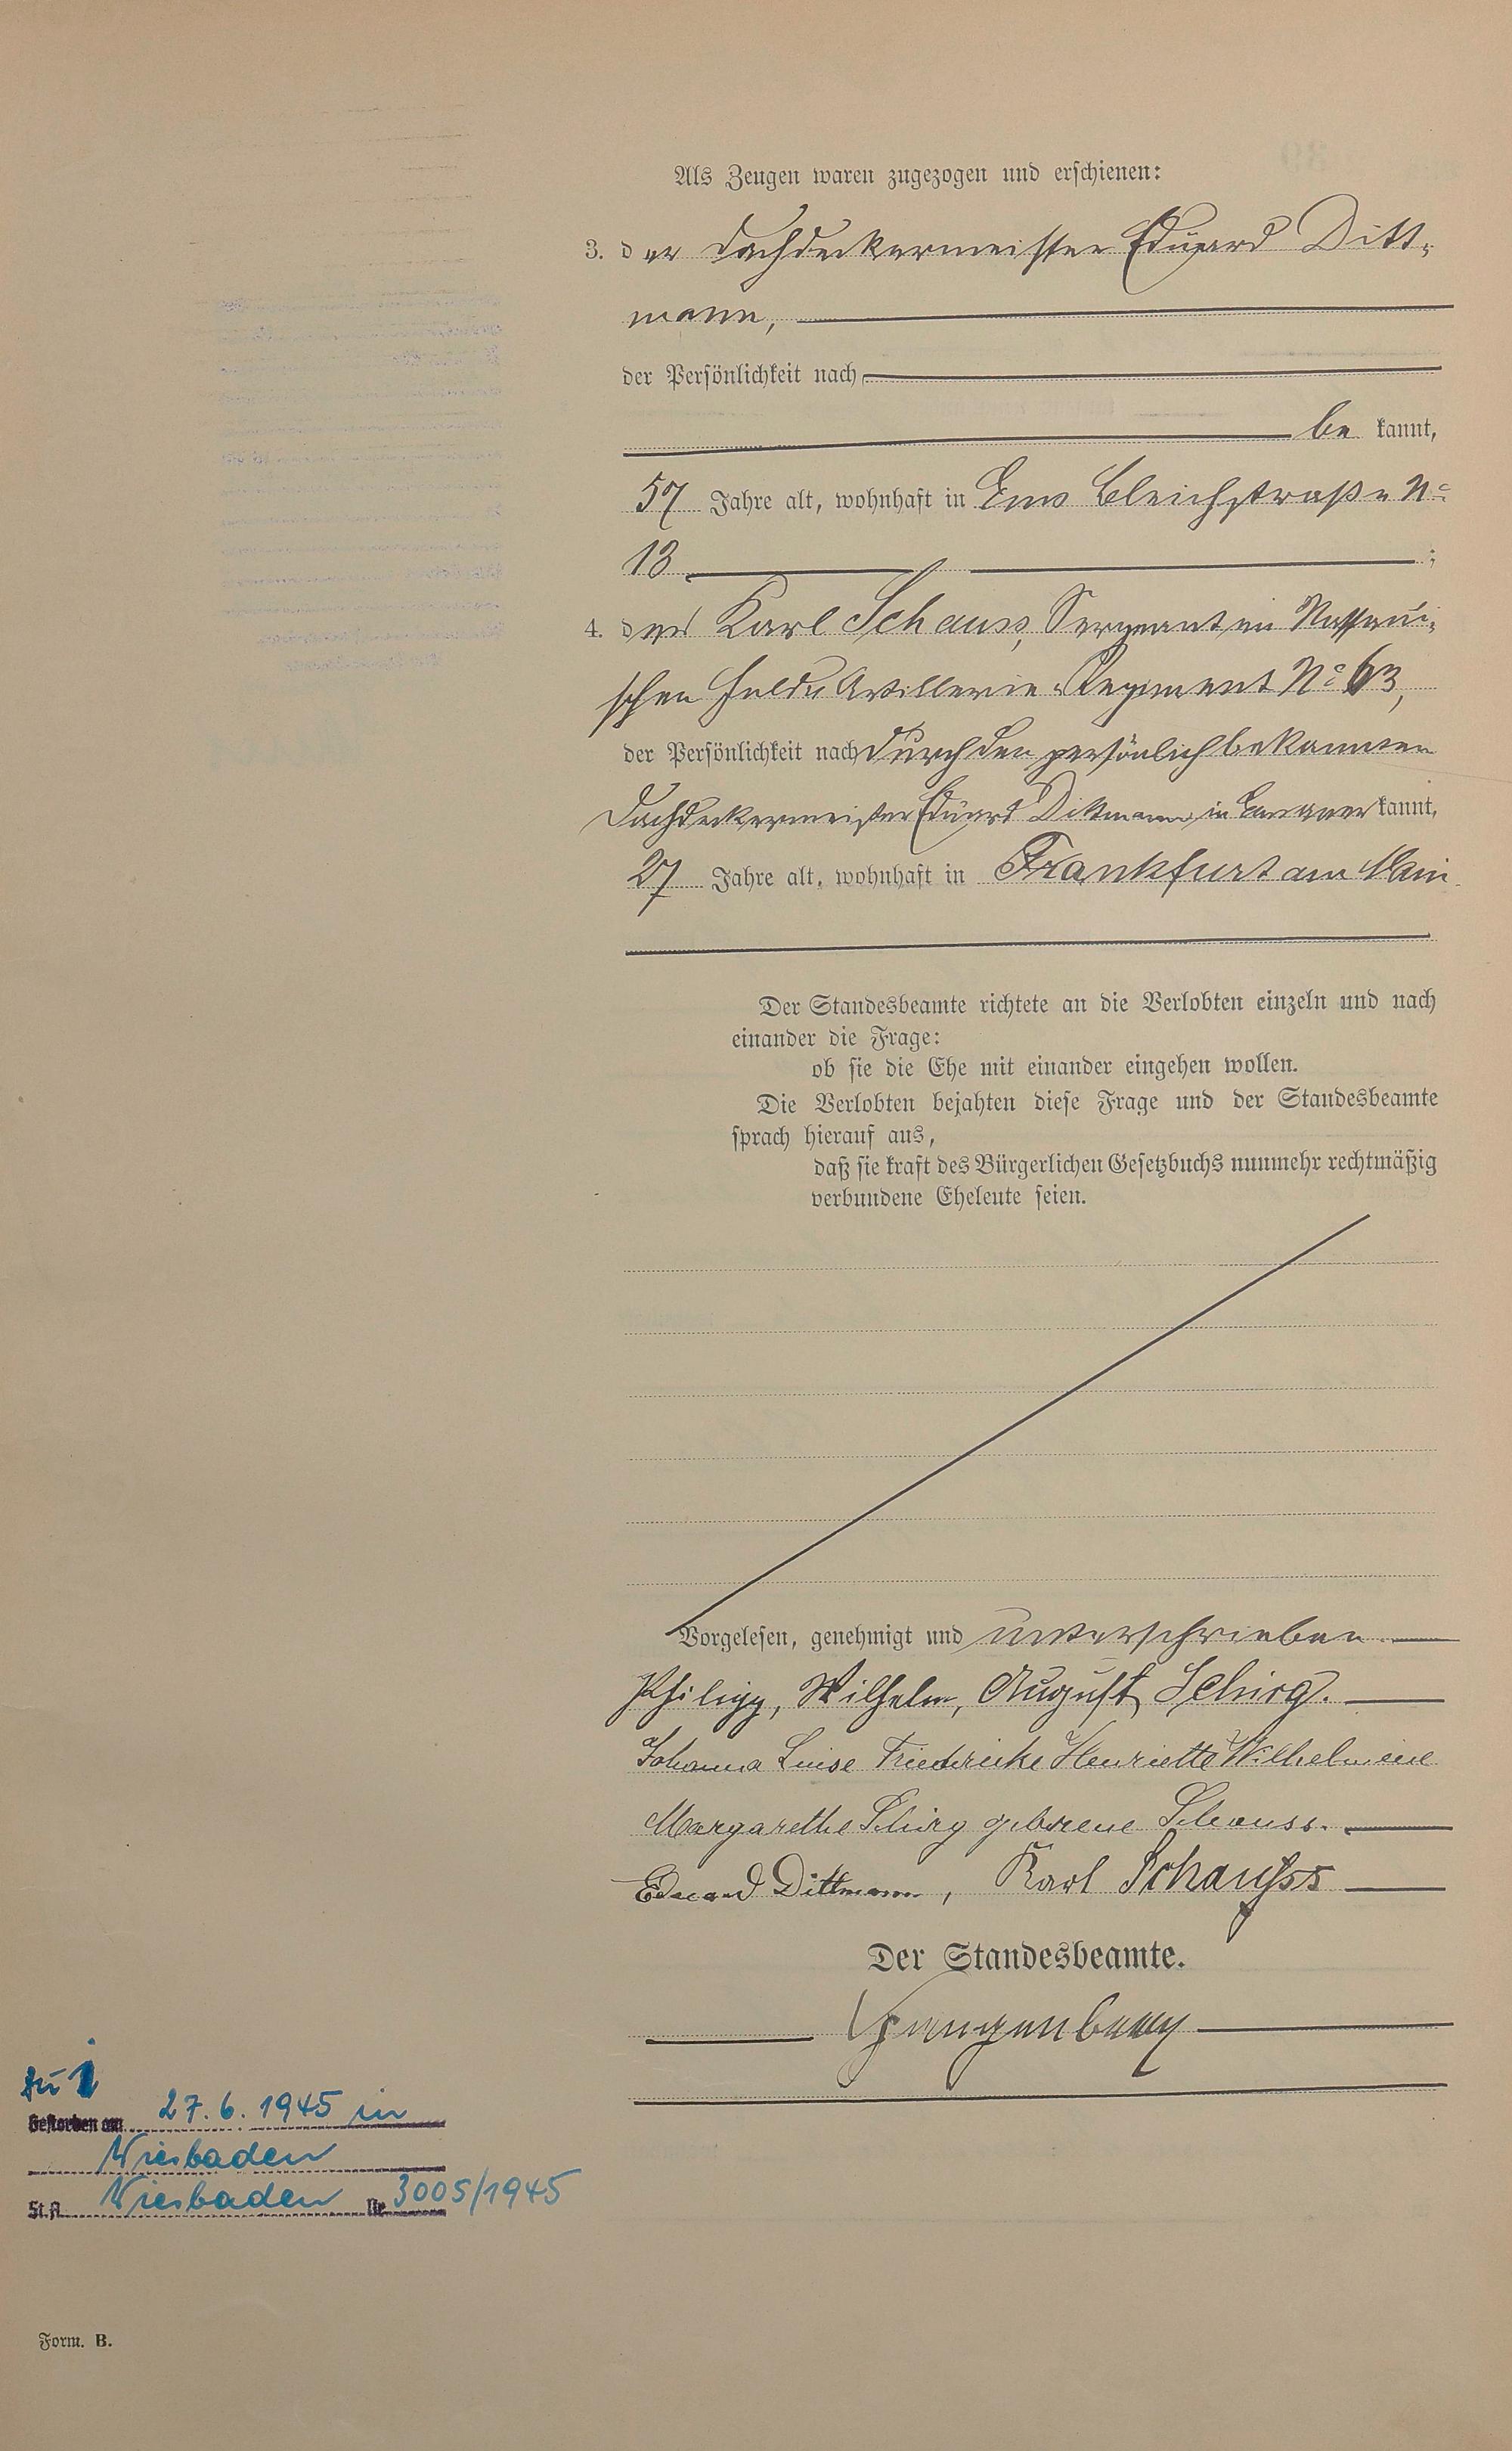 Als Zeugen waren zugezogen und erschienen:
3. der Dachdeckermeister Eduard Ditt-
mann,
der Persönlichkeit nach
be kannt,
57 Jahre alt, wohnhaft in Ems Bleichstraße No
13 ;
4. der Karl Schauss, Sergeant im Nassaui-
schen Feld-Artillerie-Regiment No 63,
der Persönlichkeit nach durch den persönlich bekannten
Dachdeckermeister Eduard Dittmann in Ems aner kannt,
27 Jahre alt, wohnhaft in Frankfurt am Main
Der Standesbeamte richtete an die Verlobten einzeln und nach
einander die Frage:
ob sie die Ehe mit einander eingehen wollen.
Die Verlobten bejahten diese Frage und der Standesbeamte
sprach hierauf aus,
daß sie kraft des Bürgerlichen Gesetzbuchs nunmehr rechtmäßig
verbundene Eheleute seien.
Vorgelesen, genehmigt und unterschrieben
Philipp, Wilhelm, August Schirg.
Johanna Luise Friedericke Henriette Wilhelmine
Margarethe Schirg geborene Schauss.
Eduard Dittmann, Karl Schauss
Der Standesbeamte.
zu 1
Gestorben am 27.6.1945 in
Wiesbaden
St.A. Wiesbaden Nr. 3005/1945
Form. B.